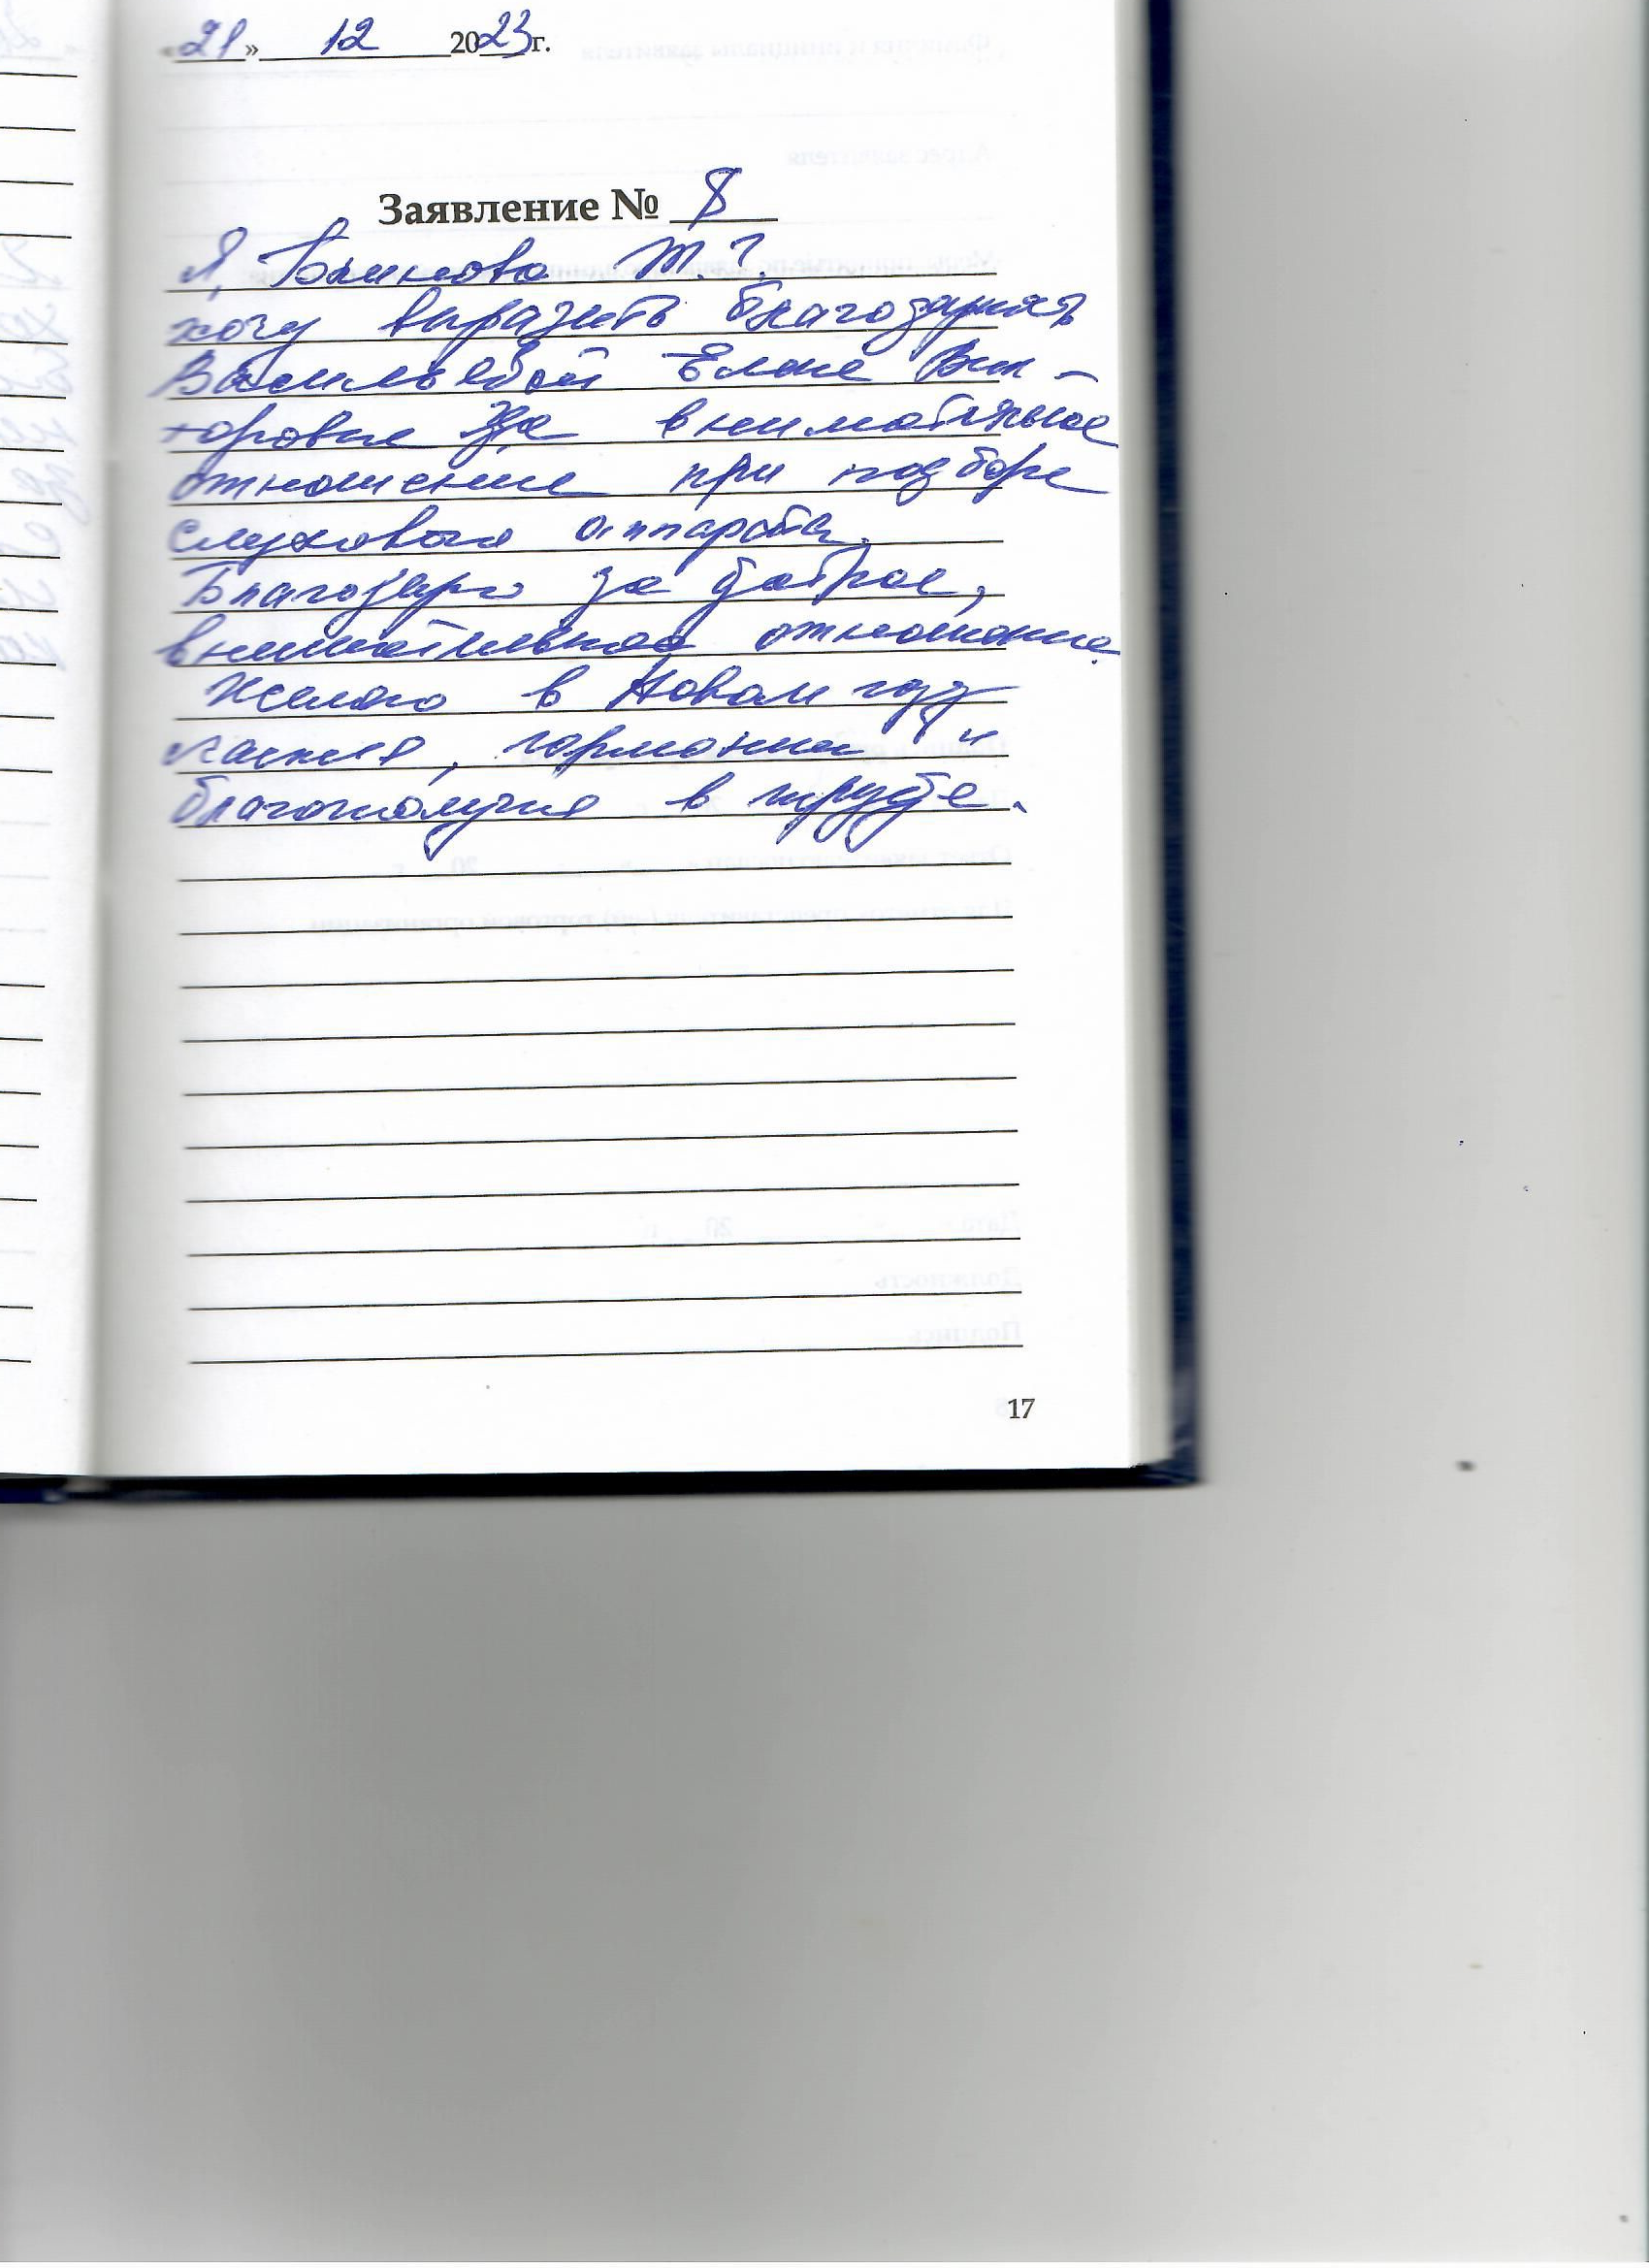 «21» 12 2023г.
Заявление № 8
Я, Блинова Т. Г.
хочу выразить благодарность
Васильевой Елене Вик-
торовне за внимательное
отношение при подборе
слухового аппарата.
Благодарю за доброе,
внимательное отношение.
Желаю в Новом году
счастья, гармонии и
благополучия в труде.
17